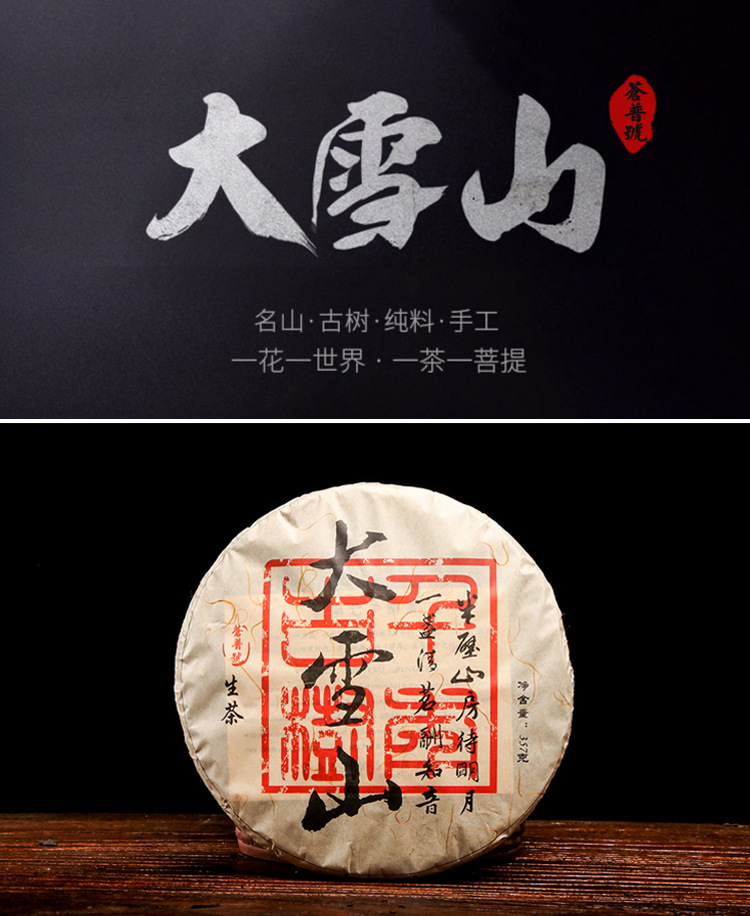 大雪山
蒼普號
名山·古树·纯料·手工
一花一世界·一茶一菩提
大雪山
半壁山房待明月
一盏清茗酬知音
蒼普號
生茶
净含量：357克